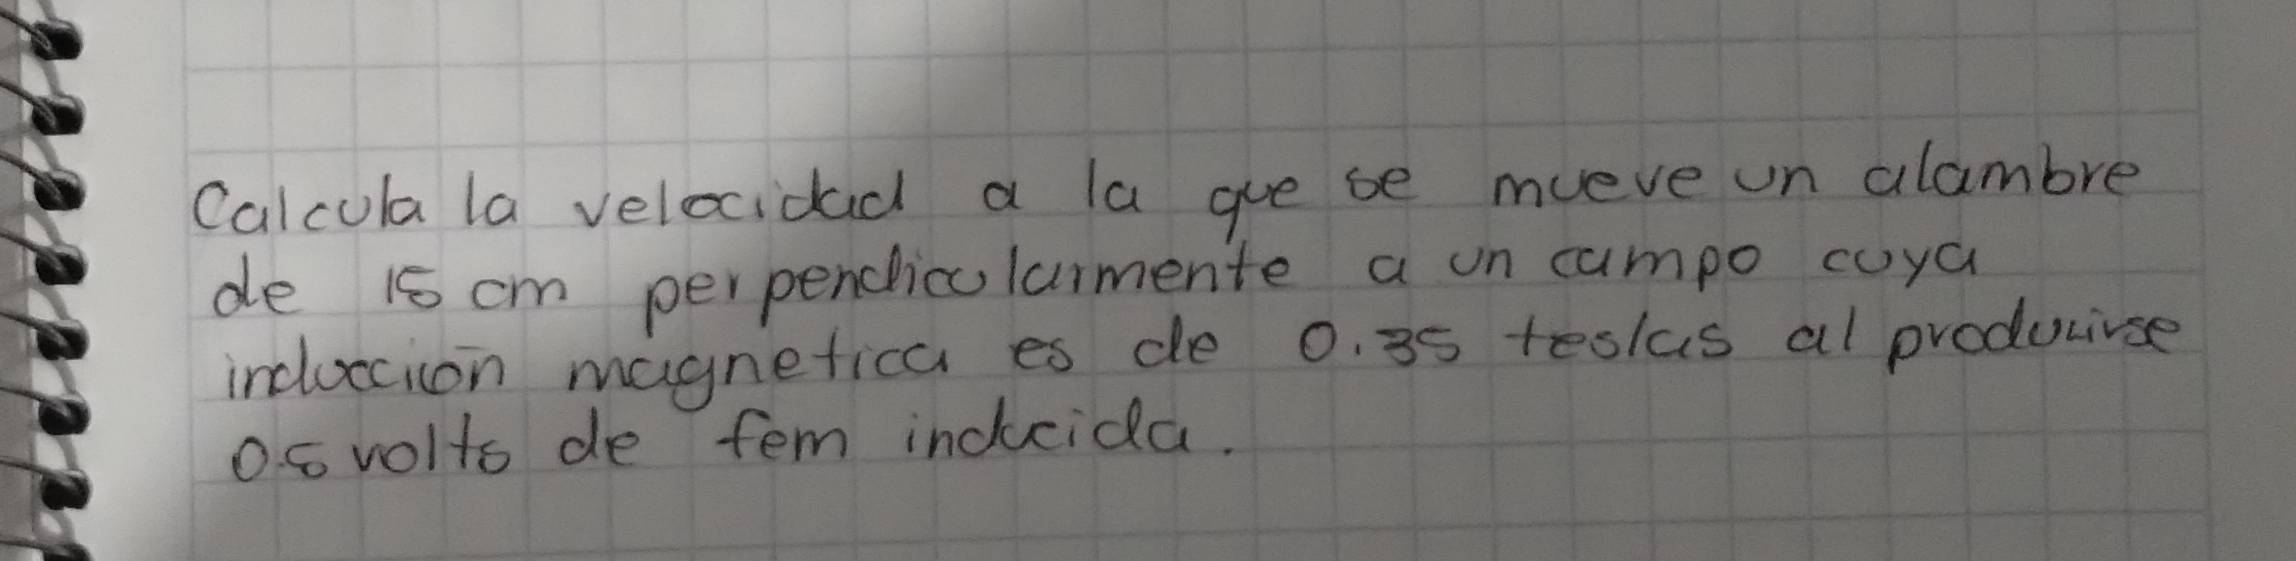 Calcula la velocidad a la que se mueve un alambre
de 15 cm perpendicularmente a un campo cuya
inducción magnetica es de 0.35 teslas al producirse
0.5 volts de fem inducida.